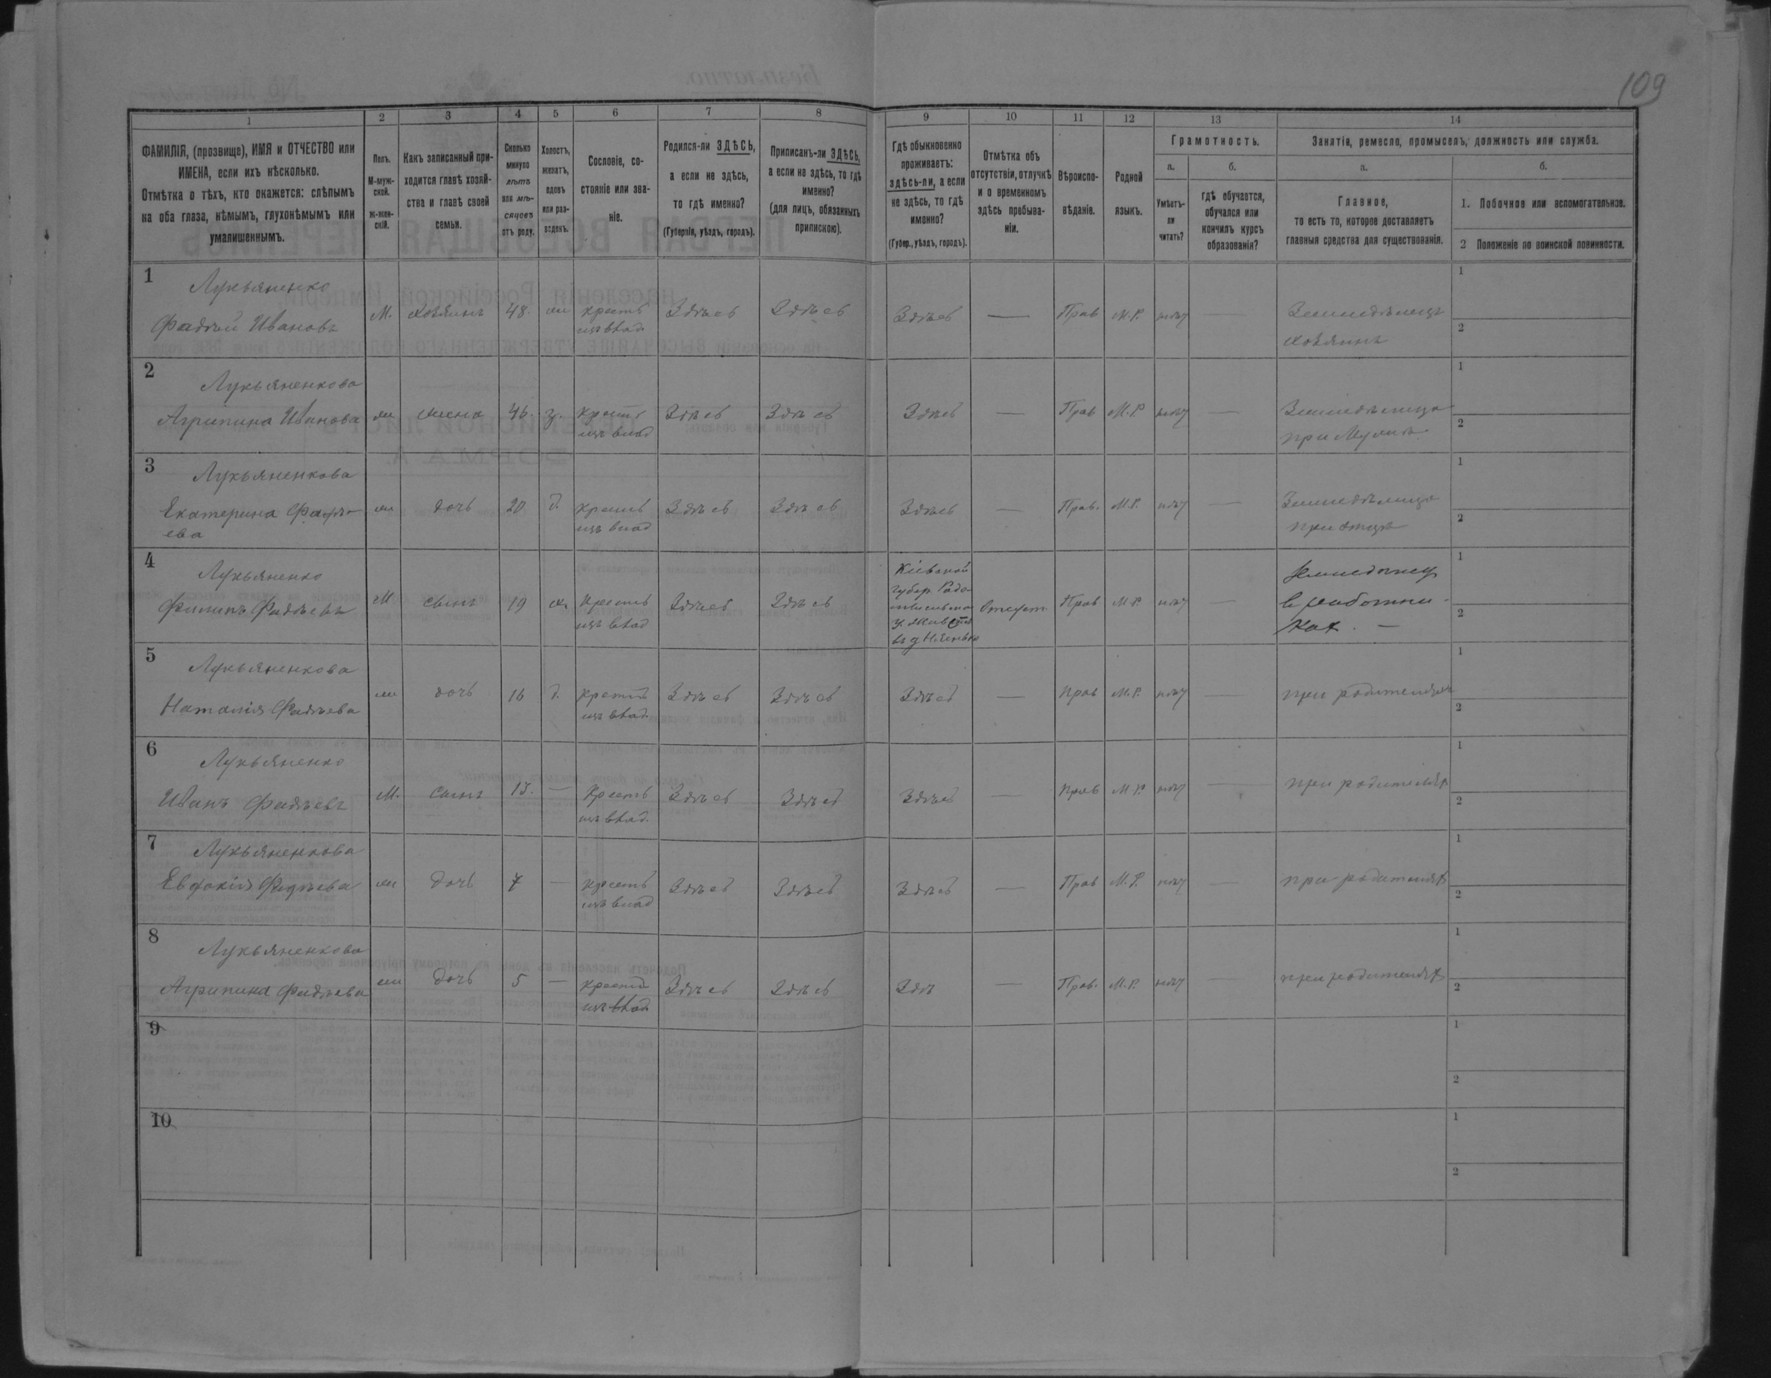 109
1
2
3
4
5
6
7
8
9
10
11
12
13
14
ФАМИЛІЯ, (прозвище), ИМЯ и ОТЧЕСТВО или
ИМЕНА, если ихъ нѣсколько.
Отмѣтка о тѣхъ, кто окажется: слѣпымъ
на оба глаза, нѣмымъ, глухонѣмымъ или
умалишеннымъ.
Полъ.
М-муж-
ской.
Ж-жен-
скій.
Какъ записанный при-
ходится главѣ хозяй-
ства и главѣ своей
семьи.
Сколько
минуло
лѣтъ
или мѣ-
сяцевъ
отъ роду.
Холостъ,
женатъ,
вдовъ
или раз-
веденъ.
Сословіе, со-
стояніе или зва-
ніе.
Родился-ли ЗДѢСЬ,
а если не здѣсь,
то гдѣ именно?
(Губернія, уѣздъ, городъ).
Приписанъ-ли ЗДѢСЬ,
а если не здѣсь, то гдѣ
именно?
(для лицъ, обязанныхъ
припискою).
Гдѣ обыкновенно
проживаетъ:
здѣсь-ли, а если
не здѣсь, то гдѣ
именно?
(Губер., уѣздъ, городъ).
Отмѣтка объ
отсутствіи, отлучкѣ
и о временномъ
здѣсь пребыва-
ніи.
Вѣроиспо-
вѣданіе.
Родной
языкъ.
Грамотность.
а.
б.
Умѣетъ-
ли
читать?
гдѣ обучается,
обучался или
кончилъ курсъ
образованія?
Занятія, ремесло, промыселъ, должность или служба.
а.
б.
Главное,
то есть то, которое доставляетъ
главныя средства для существованія.
1. Побочное или вспомогательное.
2 Положеніе по воинской повинности.
1
Лукьяненко
Фадѣй Ивановъ
М.
хозяинъ
48.
жен
крестъ
изъ влад
Здѣсь
Здѣсь
Здѣсь
—
Прав
М.Р.
нѣт
—
Земледѣлецъ
хозяинъ
1
2
2
Лукьяненкова
Агрипина Иванова
жен
жена
46.
з.
крестъ
изъ влад
Здѣсь
Здѣсь
Здѣсь
—
Прав
М.Р
нѣт
—
Земледѣлица
при Мужѣ
1
2
3
Лукьяненкова
Екатерина Фадѣ-
ева
жен
дочь
20
д.
крестъ
изъ влад
Здѣсь
Здѣсь
Здѣсь
—
Прав.
М.Р.
нѣт
—
Земледѣлица
при отцѣ
1
2
4
Лукьяненко
Филипъ Фадѣевъ
М
сынъ
19
х.
крестъ
изъ влад
Здѣсь
Здѣсь
Кіевской
Губер Радо-
Отсут.
Прав
М.Р.
нѣт
—
Земледѣлец
в работни-
ках. —
1
2
5
Лукьяненкова
Наталія Фадѣева
жен
дочь
16
д.
крестъ
изъ влад.
Здѣсь
Здѣсь
Здѣсь
—
Прав
М.Р.
нѣт
—
при родителях
1
2
6
Лукьяненко
Иванъ Фадѣевъ
М.
сынъ
13.
—
крестъ
изъ влад.
Здѣсь
Здѣсь
Здѣсь
—
Прав
М.Р
нѣт
—
при родителях
1
2
7
Лукьяненкова
Евдокія Фадѣева
жен
дочь
7
—
крестъ
изъ влад
Здѣсь
Здѣсь
Здѣсь
—
Прав
М.Р.
нѣт
—
при родителях
1
2
8
Лукьяненкова
Агрипина Фадѣева
жен
дочь
5
—
крестъ
изъ влад
Здѣсь
Здѣсь
Здѣ
—
Прав.
М.Р.
нѣт
—
при родителях
1
2
9
1
2
10
1
2